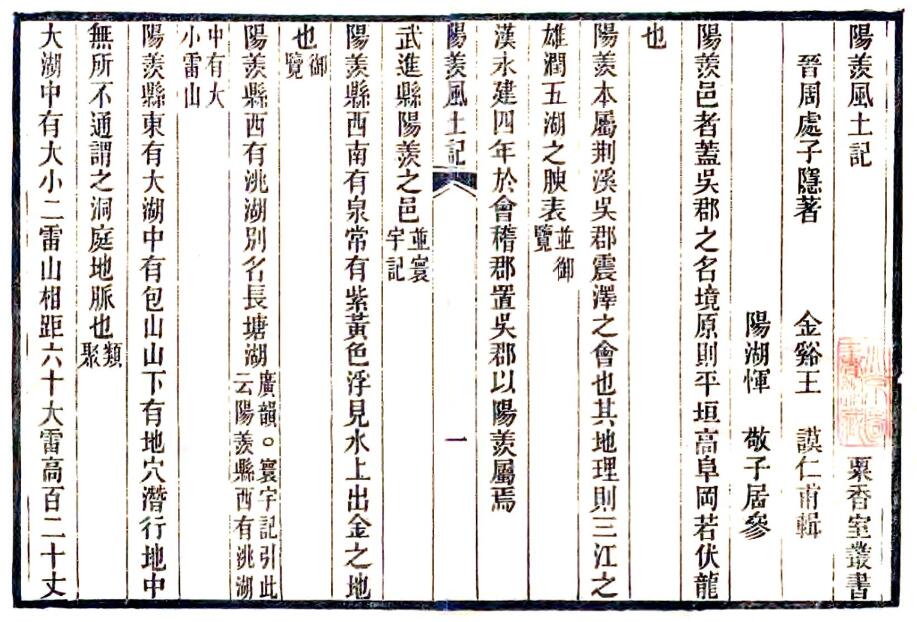 陽羨風土記　粟香室叢書
晉周處子隱著　金谿王　謨仁甫輯
陽湖惲　敬子居參
陽羨邑者蓋吳郡之名境原則平垣高阜岡若伏龍
也
陽羨本屬荆溪吳郡震澤之會也其地理則三江之
雄潤五湖之腴表並御覽
漢永建四年於會稽郡置吳郡以陽羨屬焉
陽羨風土記　一
武進縣陽羨之邑並寰宇記
陽羨縣西南有泉常有紫黃色浮見水上出金之地
也御覽
陽羨縣西有洮湖別名長塘湖廣韻○寰宇記引此云陽羨縣西有洮湖
中有大小雷山
陽羨縣東有大湖中有包山山下有地穴潛行地中
無所不通謂之洞庭地脈也類聚
大湖中有大小二雷山相距六十大雷高百二十丈